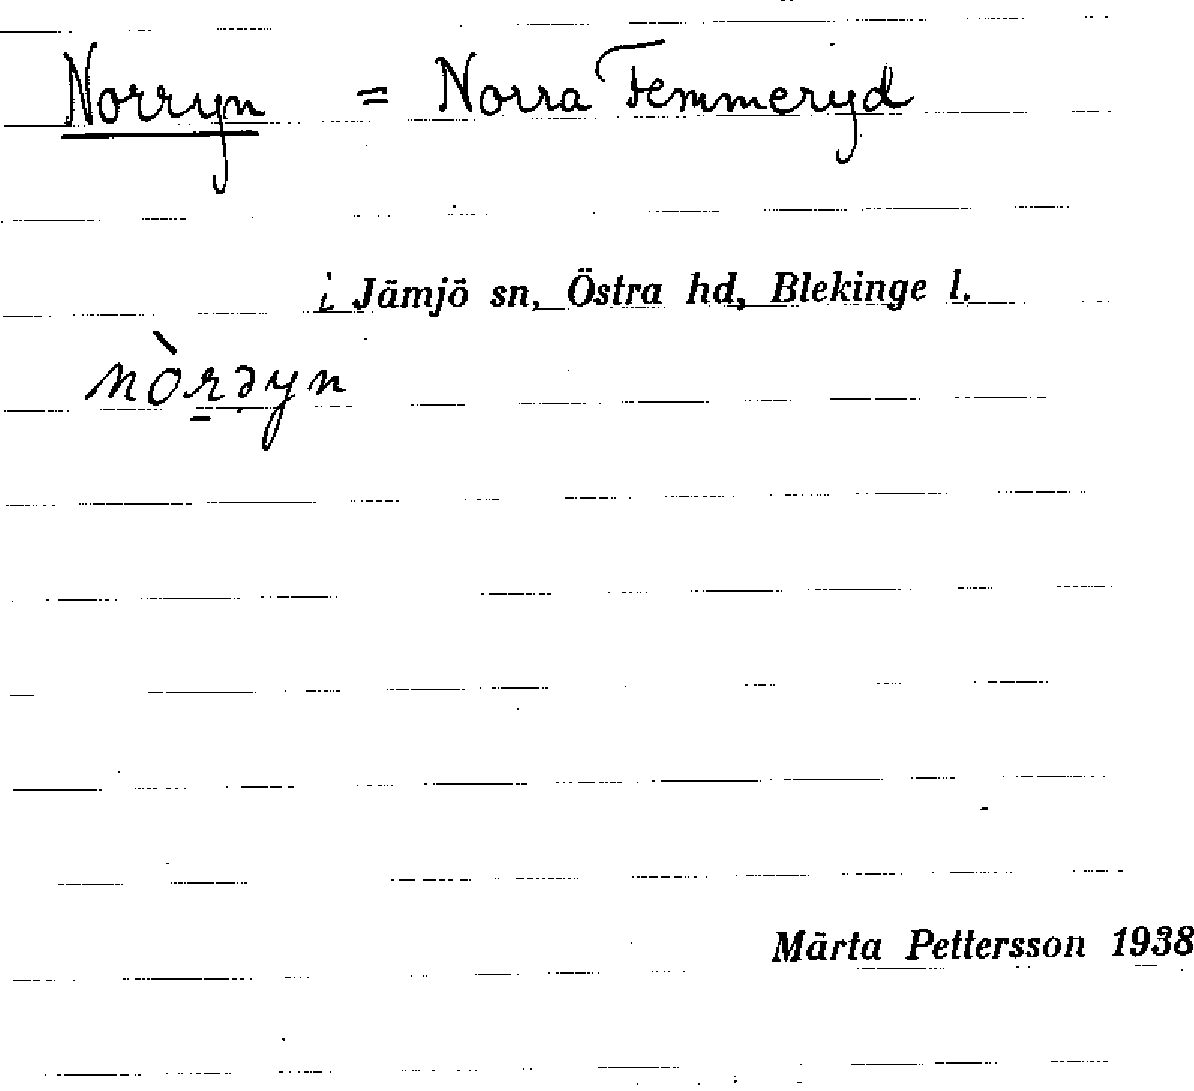 Norryn = Norra Femmeryd
i Jämjö sn, Östra hd, Blekinge l.
nòr̠əyn
Märta Pettersson 1938